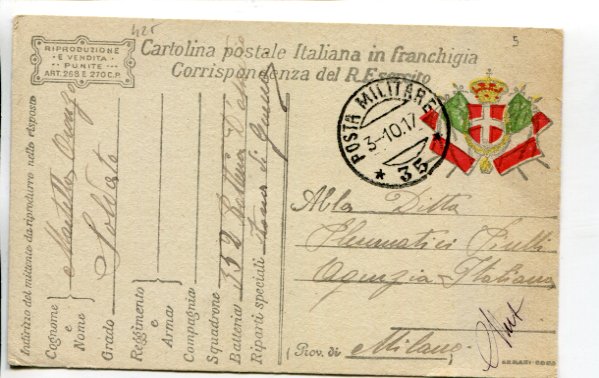 425
5
RIPRODUZIONE
E VENDITA
PUNITE
ART. 268 E 270 C.P.
Cartolina postale Italiana in franchigia
Corrispondenza del R. Esercito
POSTA MILITARE
3-10.17
* 35 *
Indirizzo del mittente da riprodurre nella risposta
Cognome
e
Nome
Grado Soldato
Reggimento
e
Arma
Compagnia
Squadrone
Batteria 132 Batteria
Riparti speciali Zona di guerra
Alla Ditta
Pneumatici Pirelli
Agenzia Italiana
(Prov. di Milano